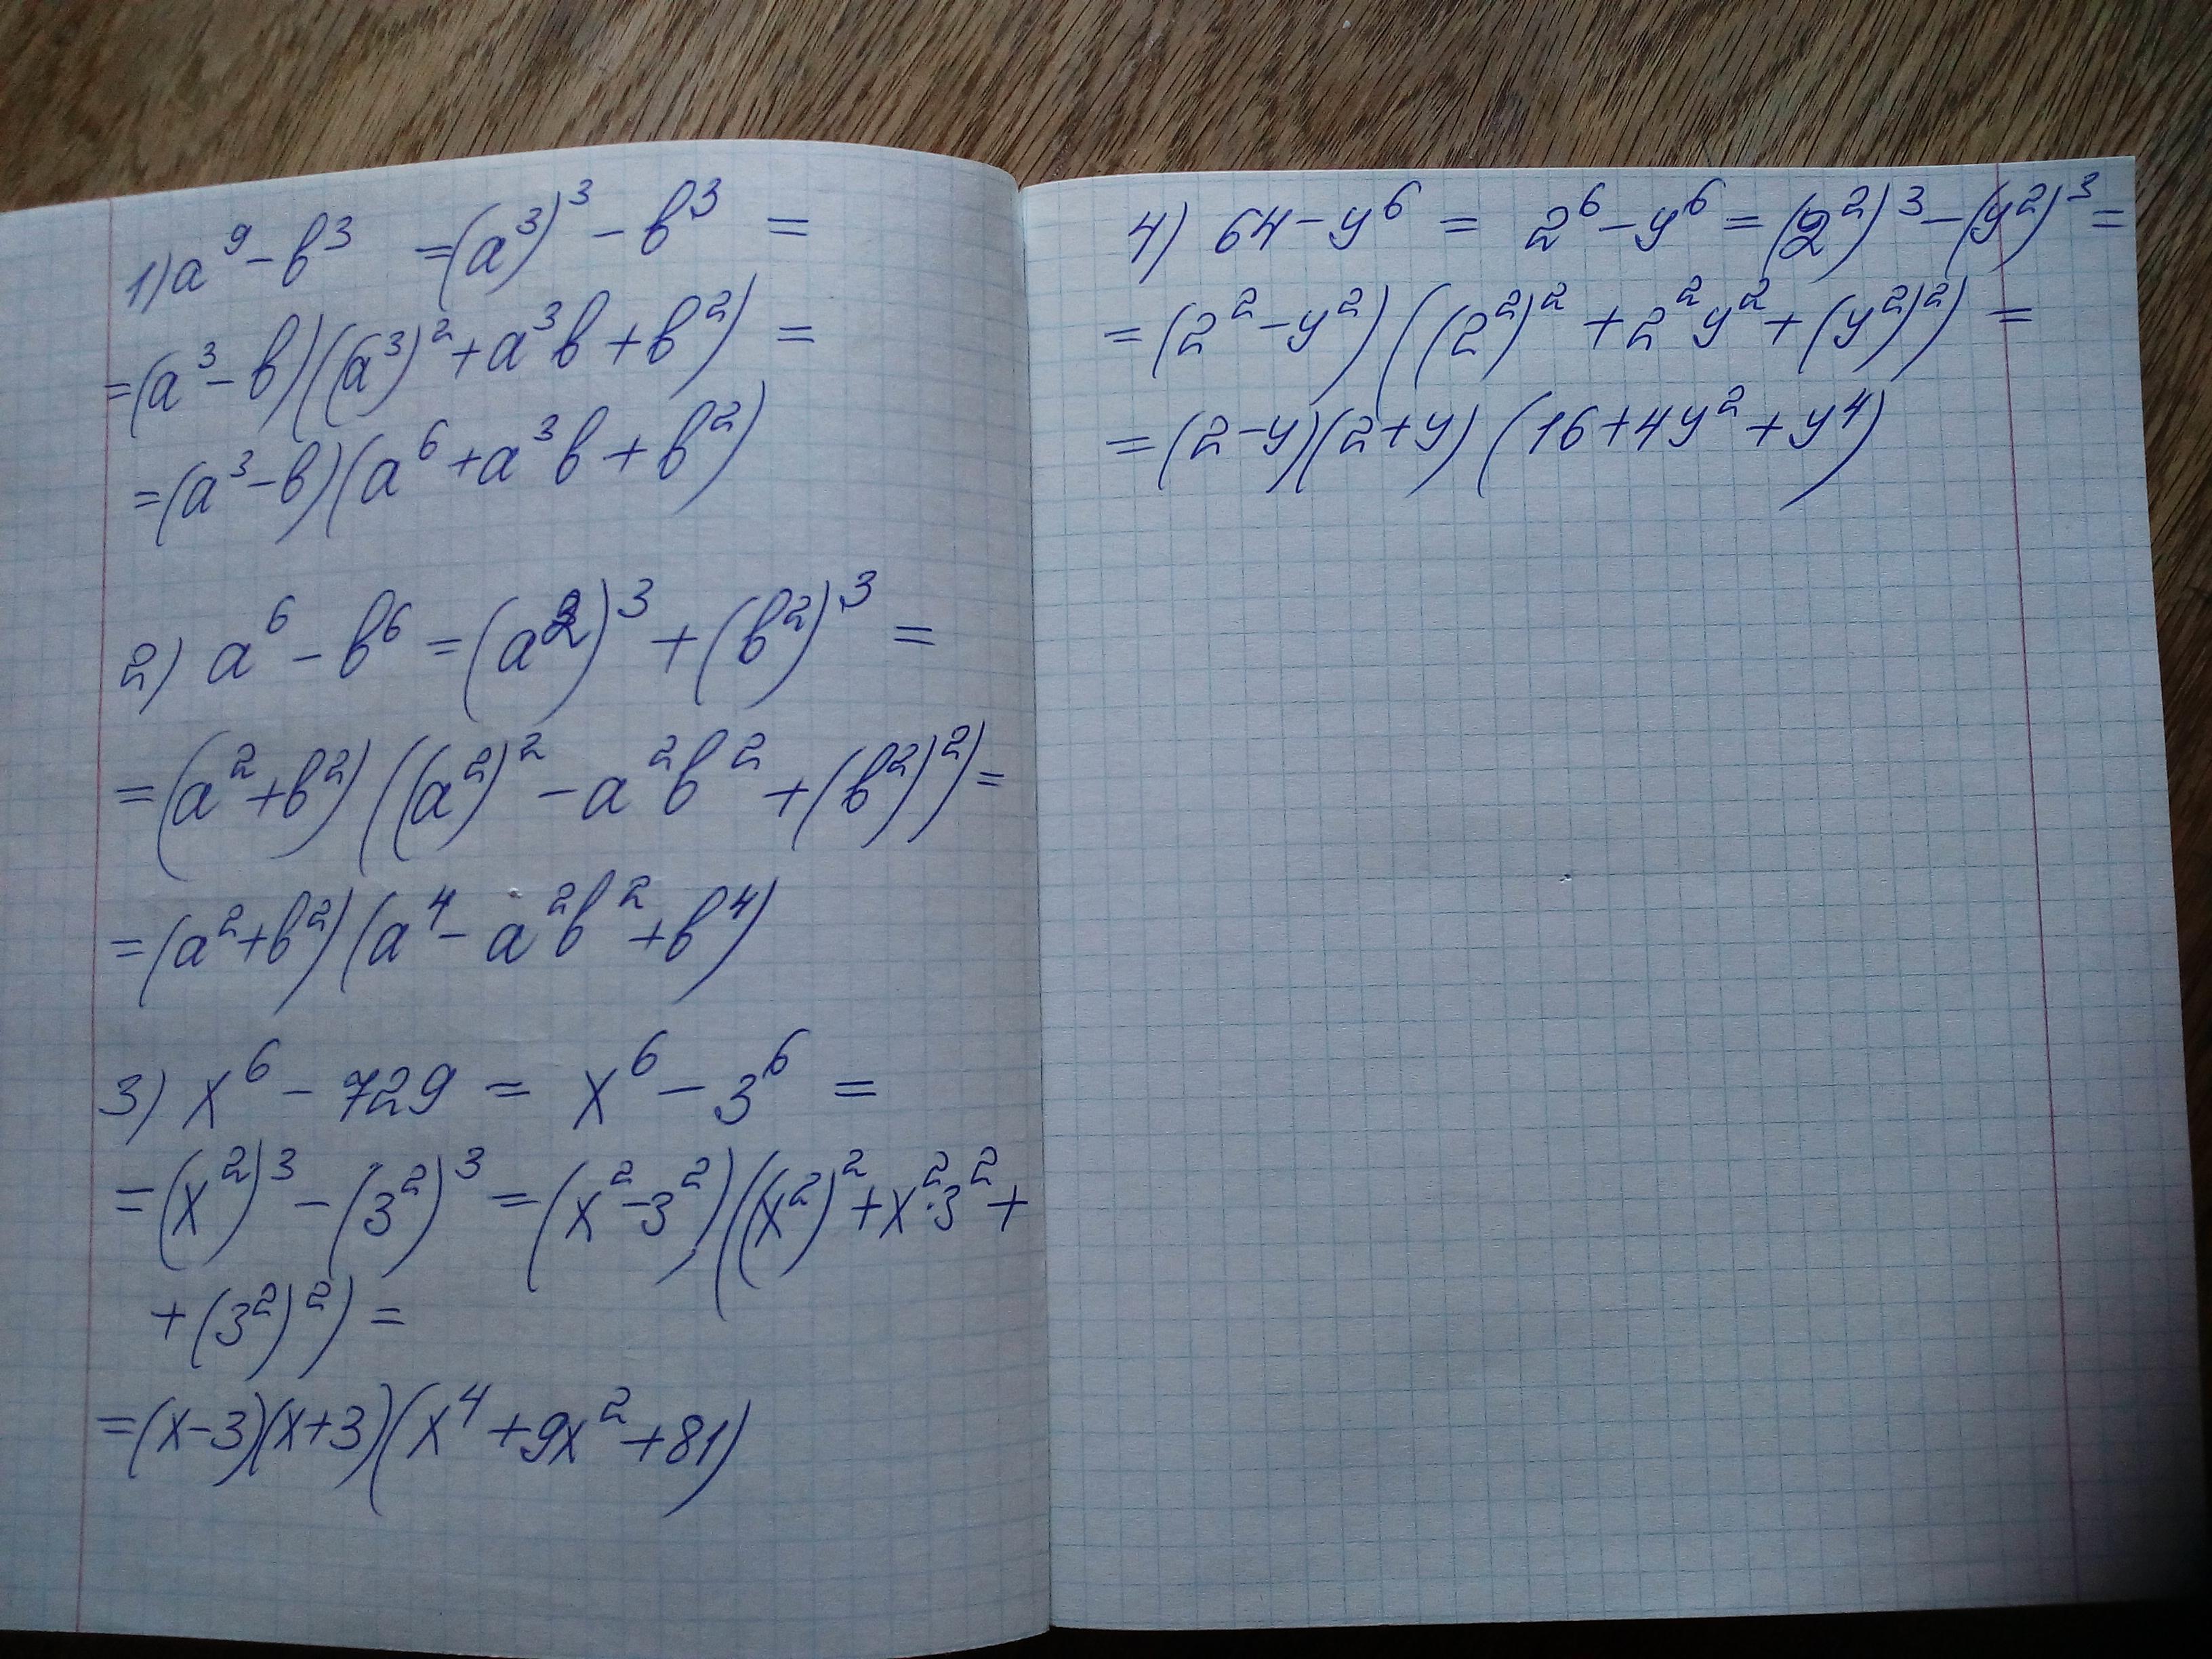 1) a⁹ - b³ = (a³)³ - b³ =
= (a³ - b)((a³)² + a³b + b²) =
= (a³ - b)(a⁶ + a³b + b²)
2) a⁶ - b⁶ = (a²)³ + (b²)³ =
= (a² + b²)((a²)² - a²b² + (b²)²) =
= (a² + b²)(a⁴ - a²b² + b⁴)
3) x⁶ - 729 = x⁶ - 3⁶ =
= (x²)³ - (3²)³ = (x² - 3²)((x²)² + x²·3² +
+ (3²)²) =
= (x - 3)(x + 3)(x⁴ + 9x² + 81)
4) 64 - y⁶ = 2⁶ - y⁶ = (2²)³ - (y²)³ =
= (2² - y²)((2²)² + 2²y² + (y²)²) =
= (2 - y)(2 + y)(16 + 4y² + y⁴)